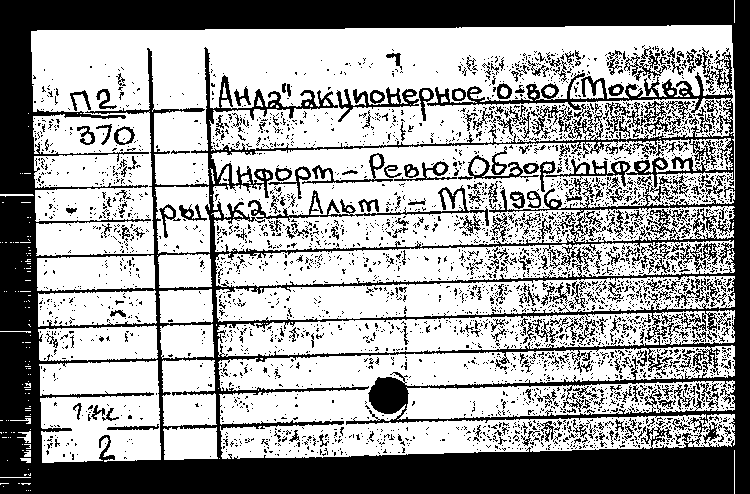 П2
370
Анда", акционерное о-во (Москва)
Информ - Ревю: Обзор информ
рынка. Альм - М, 1996 -
1 экс.
2